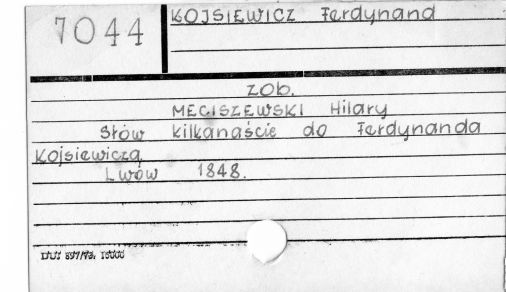 7044
KOJSIEWICZ Ferdynand
zob.
MECISZEWSKI Hilary
Słów kilkanaście do Ferdynanda
Kojsiewicza
Lwów 1848.